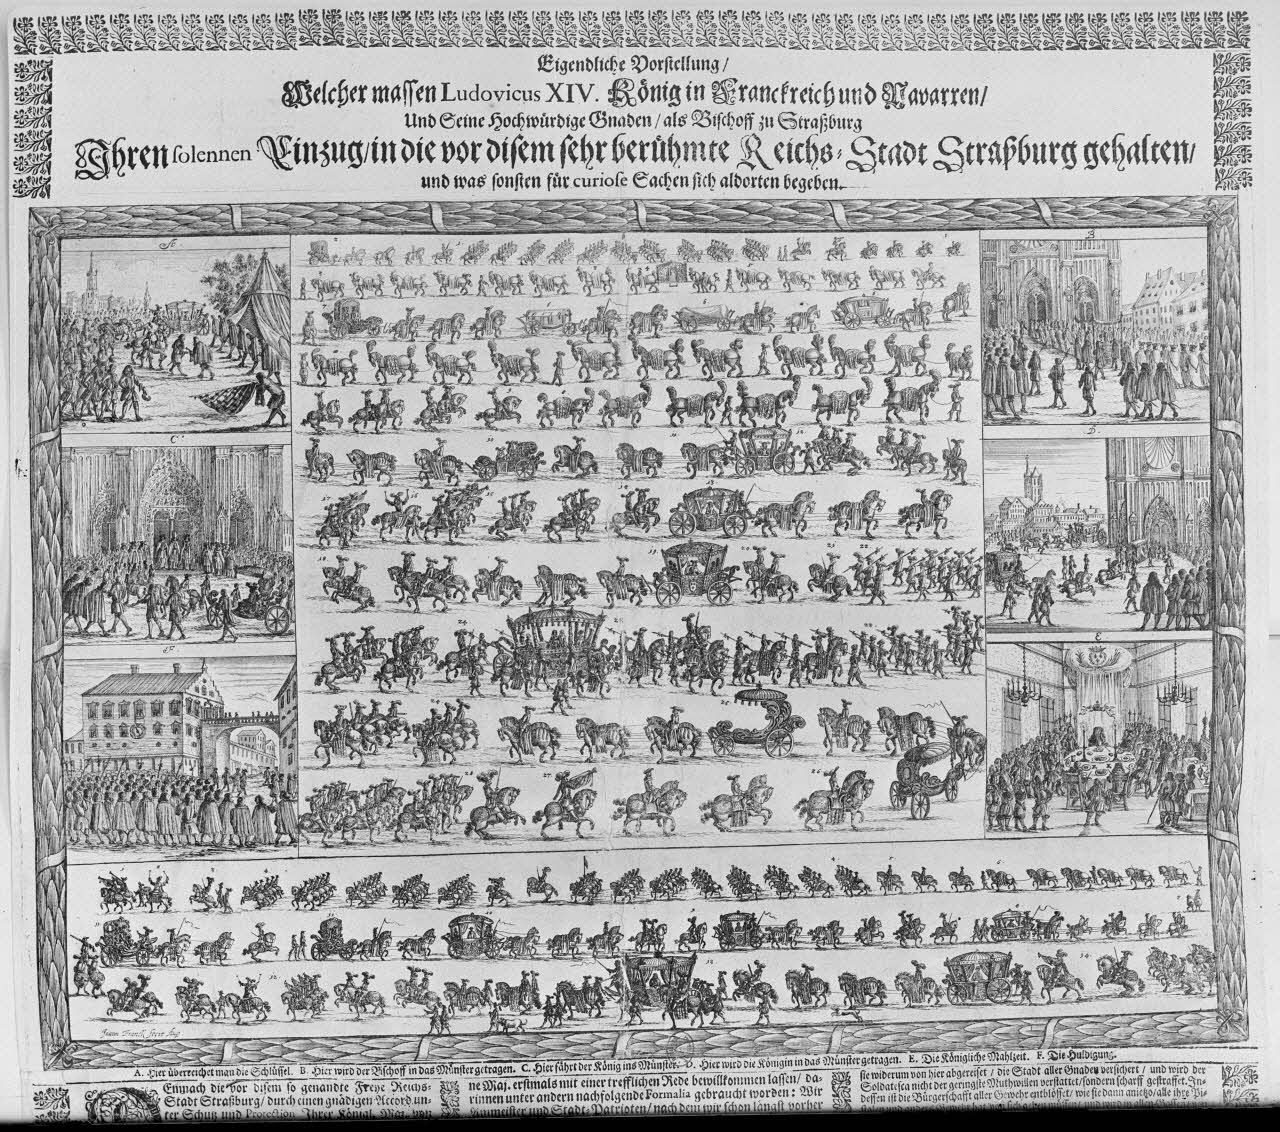 Eigendliche Vorstellung/
Welcher massen Ludovicus XIV. König in Franckreich und Navarren/
Und Seine Hochwürdige Gnaden/ als Bischoff zu Straßburg
Ihren solennen Einzug/ in die vor disem sehr berühmte Reichs-Stadt Straßburg gehalten/
und was sonsten für curiose Sachen sich aldorten begeben.
A.
B.
C.
D.
F.
E
A. Hier überreichet man die Schlüssel. B. Hier wird der Bischoff in das Münster getragen. C. Hier fährt der König ins Münster. D. Hier wird die Königin in das Münster getragen. E. Die Königliche Mahlzeit. F. Die Huldigung.
Demnach die vor disem so genandte Freye Reichs-
Stadt Straßburg/ durch einen gnädigen Accord un-
ter Schutz und Protection Ihrer Königl. Maj. von
ne Maj. erstmals mit einer trefflichen Rede bewillkommen lassen/ da-
rinnen unter andern nachfolgende Formalia gebraucht worden: Wir
Stadt-Patrioten/ nach dem wir schon längst vorher
sie widerum von hier abgereiset/ die Stadt aller Gnaden versichert/ und wird der
Soldatesca nicht der geringste Muthwillen verstattet/ sondern scharff gestraffet. In-
dessen ist die Bürgerschafft aller Gewehr entblösset/ wie sie dann